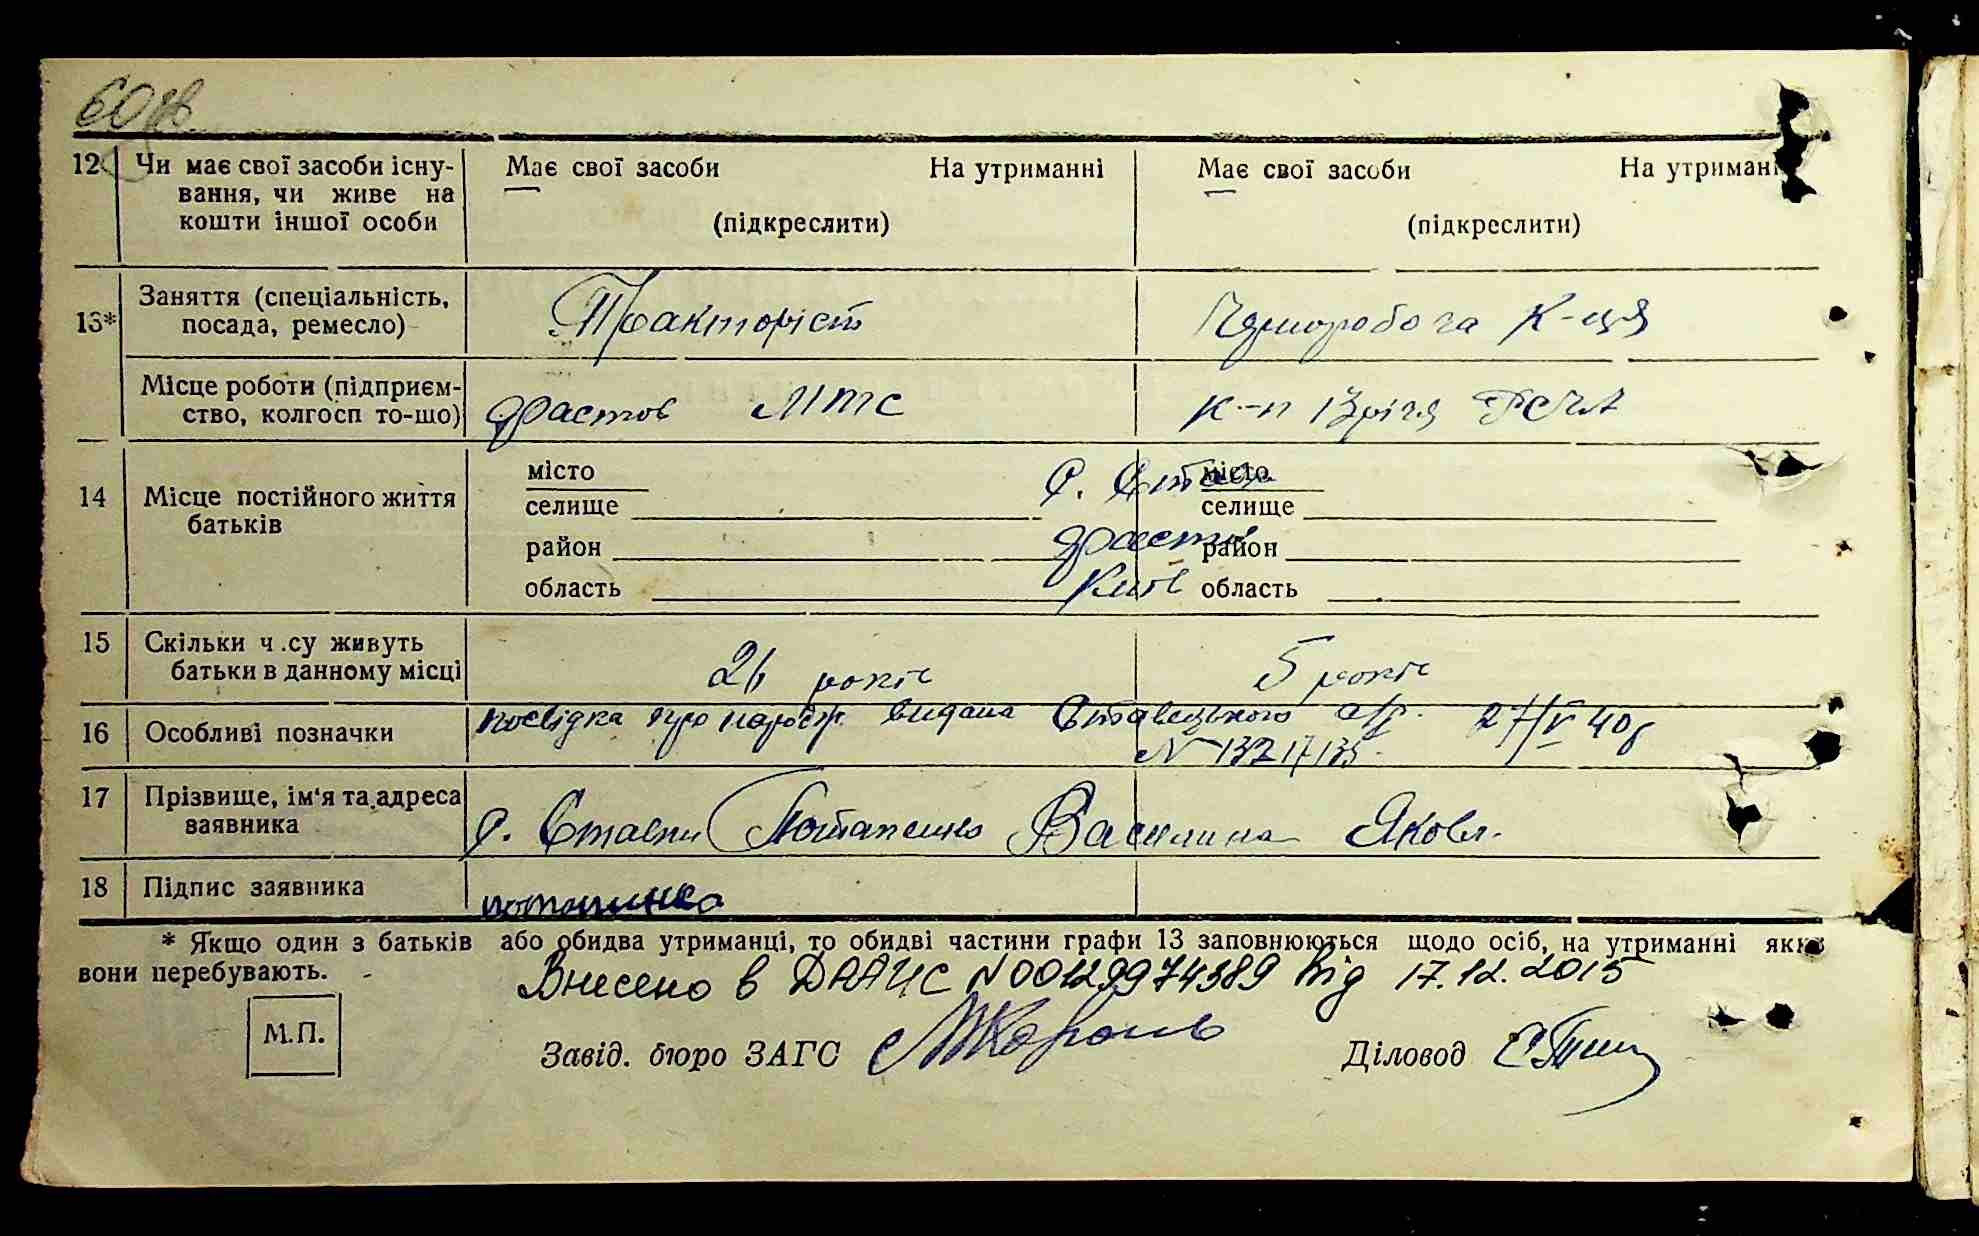 60
12 Чи має свої засоби існу- Має свої засоби На утриманні Має свої засоби На утриман
вання, чи живе на
кошти іншої особи (підкреслити) (підкреслити)
13* Заняття (спеціальність, Тракторіст Чорноробоча К-ця
посада, ремесло)
Місце роботи (підприєм- Фастов МТС к-п Зріча
ство, колгосп то-що)
14 Місце постійного життя місто місто
батьків селище с. селище
район Фастів район
область Київ область
15 Скільки ч.су живуть 26 років 5 років
батьки в данному місці
16 Особливі позначки посвідка про народж. видана Ставецького с/р. 27/V 40р
N
17 Прізвище, ім'я та адреса с. Ставки Потапенко Василина Яковл.
заявника
18 Підпис заявника потапенко
* Якщо один з батьків або обидва утриманці, то обидві частини графи 13 заповнюються щодо осіб, на утриманні яких
вони перебувають.
Внесено в ДРАЦС N00129974389 від 17.12.2015
М.П. Завід. бюро ЗАГС Діловод